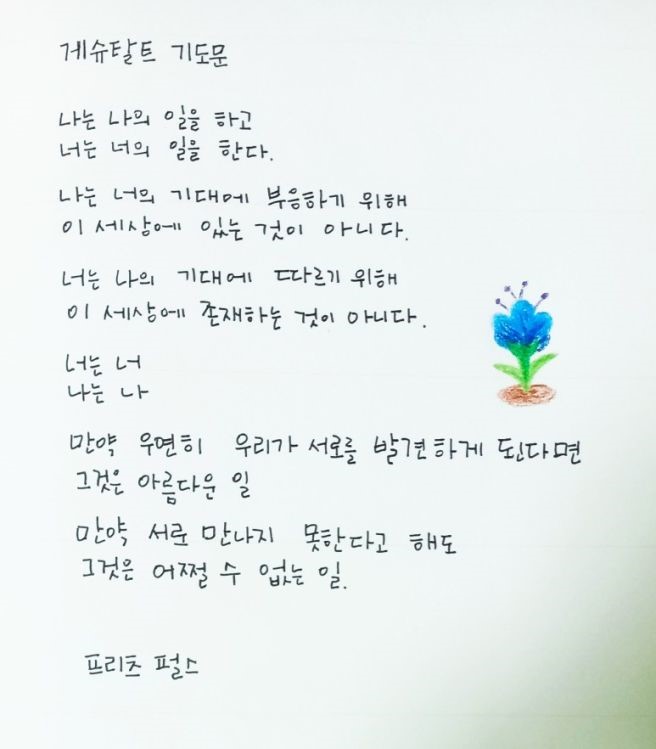 게슈탈트 기도문
나는 나의 일을 하고
너는 너의 일을 한다.
나는 너의 기대에 부응하기 위해
이 세상에 있는 것이 아니다.
너는 나의 기대에 따르기 위해
이 세상에 존재하는 것이 아니다.
너는 너
나는 나
만약 우연히 우리가 서로를 발견하게 된다면
그것은 아름다운 일
만약 서로 만나지 못한다고 해도
그것은 어쩔 수 없는 일.
프리츠 펄스